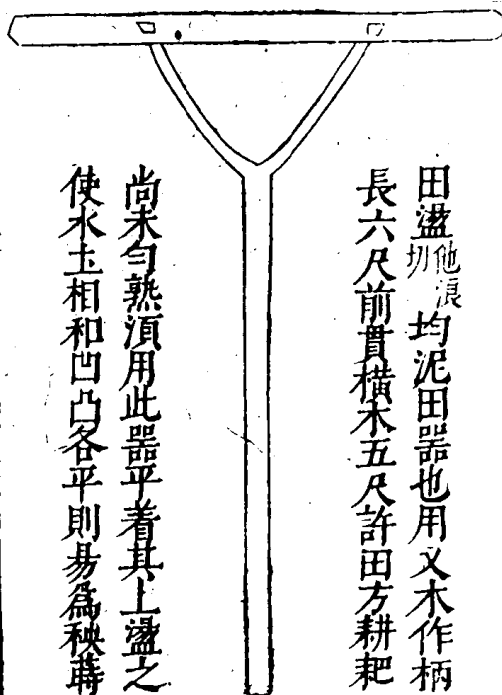 田盪他浪切均泥田器也用叉木作柄
長六尺前貫横木五尺許田方耕耙
尚未匀熟須用此器平着其上盪之
使水土相和凹凸各平則易爲秧蒔